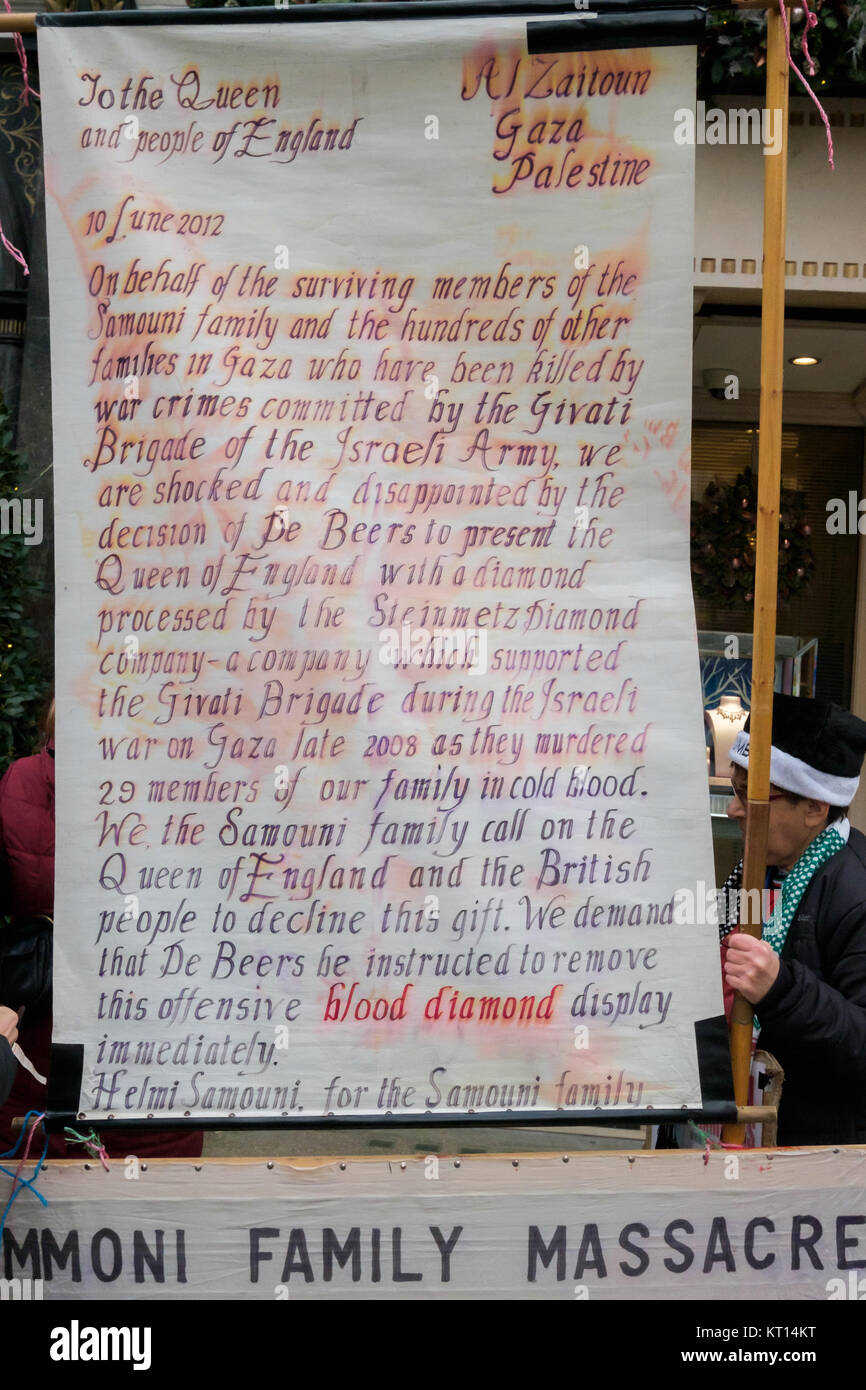 To the Queen
and people of England
Al Zaitoun
Gaza
Palestine
10 June 2012
On behalf of the surviving members of the
Samouni family and the hundreds of other
families in Gaza who have been killed by
war crimes committed by the Givati
Brigade of the Israeli Army, we
are shocked and disappointed by the
decision of De Beers to present the
Queen of England with a diamond
processed by the Steinmetz Diamond
company - a company which supported
the Givati Brigade during the Israeli
war on Gaza late 2008 as they murdered
29 members of our family in cold blood.
We, the Samouni family call on the
Queen of England and the British
people to decline this gift. We demand
that De Beers be instructed to remove
this offensive blood diamond display
immediately.
Helmi Samouni, for the Samouni family
MMONI FAMILY MASSACRE
alamy
Image ID: KT14KT
www.alamy.com